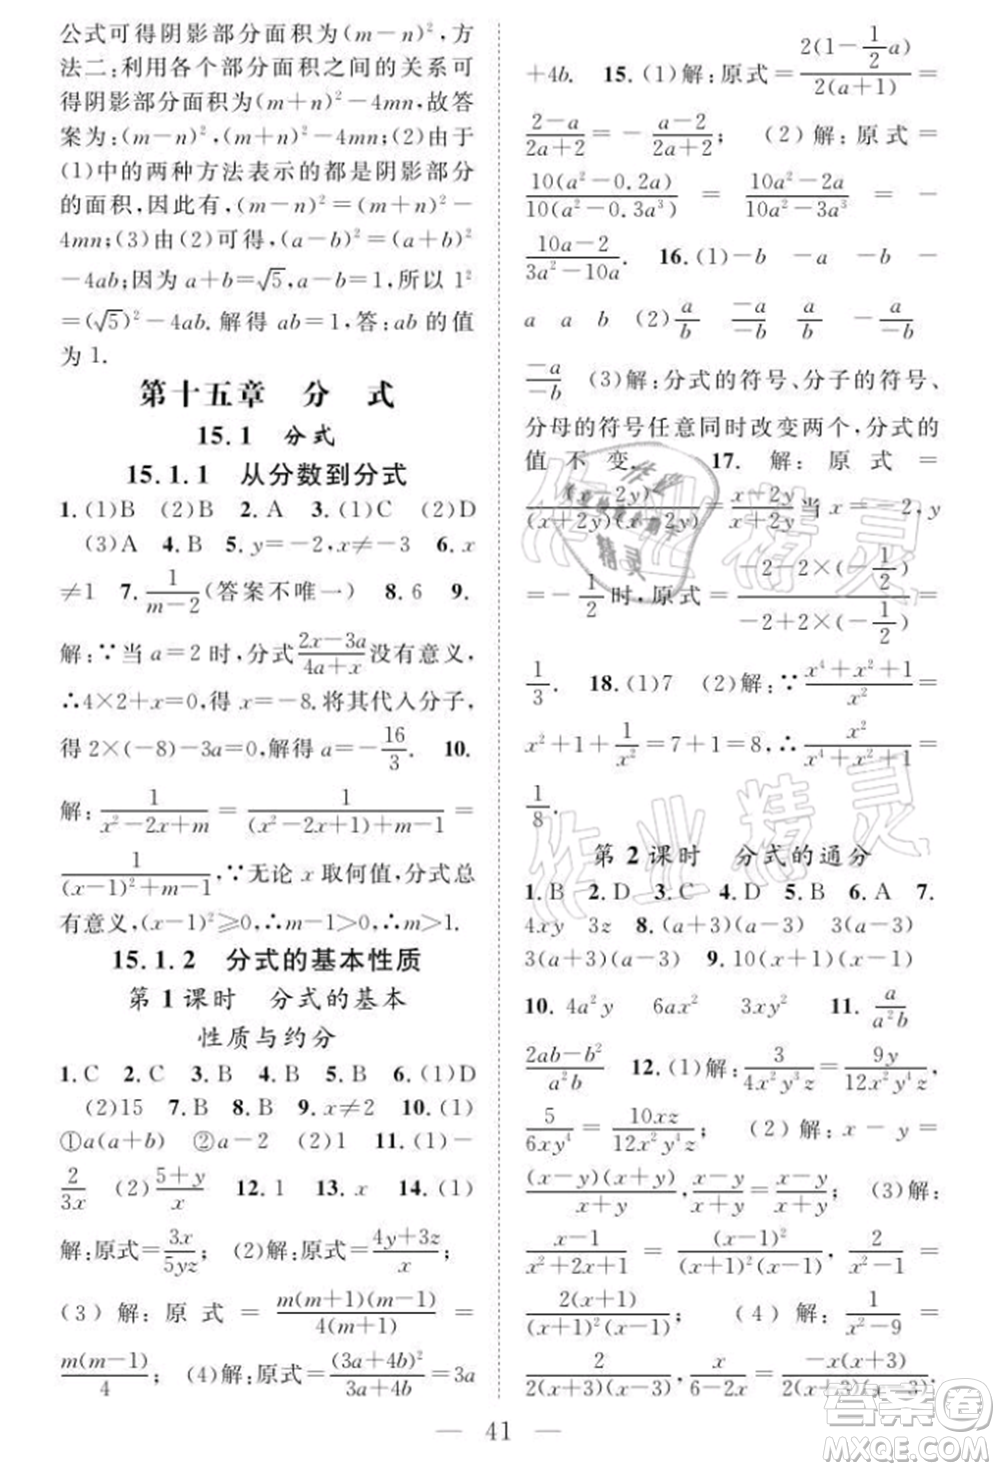 公式可得阴影部分面积为(m－n)²,方
法二:利用各个部分面积之间的关系可
得阴影部分面积为(m＋n)²－4mn,故答
案为:(m－n)²,(m＋n)²－4mn;(2)由于
(1)中的两种方法表示的都是阴影部分
的面积,因此有,(m－n)²＝(m＋n)²－
4mn;(3)由(2)可得,(a－b)²＝(a＋b)²
－4ab;因为a＋b＝√5,a－b＝1,所以1²
＝(√5)²－4ab.解得ab＝1,答:ab的值
为1.
第十五章 分 式
15.1 分式
15.1.1 从分数到分式
1.(1)B (2)B 2.A 3.(1)C (2)D
(3)A 4.B 5.y＝－2,x≠－3 6.x
≠1 7.1/(m－2)(答案不唯一) 8.6 9.
解:∵当a＝2时,分式(2x－3a)/(4a＋x)没有意义,
∴4×2＋x＝0,得x＝－8.将其代入分子,
得2×(－8)－3a＝0,解得a＝－16/3. 10.
解:1/(x²－2x＋m)＝1/((x²－2x＋1)＋m－1)＝
1/((x－1)²＋m－1),∵无论x取何值,分式总
有意义,(x－1)²≥0,∴m－1＞0,∴m＞1.
15.1.2 分式的基本性质
第1课时 分式的基本
性质与约分
1.C 2.C 3.B 4.B 5.B 6.(1)D
(2)15 7.B 8.B 9.x≠2 10.(1)
①a(a＋b) ②a－2 (2)1 11.(1)－
2/3x (2)(5＋y)/x 12.1 13.x 14.(1)
解:原式＝3x/5yz; (2)解:原式＝(4y＋3z)/x;
(3)解:原式＝m(m＋1)(m－1)/4(m＋1)＝
m(m－1)/4; (4)解:原式＝(3a＋4b)²/(3a＋4b)＝3a
＋4b. 15.(1)解:原式＝2(1－1/2a)/2(a＋1)＝
(2－a)/(2a＋2)＝－(a－2)/(2a＋2); (2)解:原式＝
10(a²－0.2a)/10(a²－0.3a³)＝(10a²－2a)/(10a²－3a³)＝－
(10a－2)/(3a²－10a). 16.(1)－b －a －b
a a b (2)a/b a/－b a/b a/－b
－a/－b (3)解:分式的符号、分子的符号、
分母的符号任意同时改变两个,分式的
值不变. 17.解:原式＝
(x＋2y)²/(x＋2y)(x－2y)＝(x＋2y)/(x－2y)当x＝－2,y
＝－1/2时,原式＝(－2－2×(－1/2))/(－2＋2×(－1/2))＝
1/3. 18.(1)7 (2)解:∵(x⁴＋x²＋1)/x²＝
x²＋1＋1/x²＝7＋1＝8,∴x²/(x⁴＋x²＋1)＝
1/8.
第2课时 分式的通分
1.B 2.D 3.C 4.D 5.A 6.A 7.
4xy 3z 8.(a＋3)(a－3) 3(a－3)
3(a＋3)(a－3) 9.10(x＋1)(x－1)
10.4a²y 6ax² 3xy 11.a/a²b
(2ab－b²)/a²b 12.(1)解:3/4x²y³z＝9y/12x²y⁴z,
5/6xy⁴＝10xz/12x²y⁴z; (2)解:x－y＝
(x－y)(x＋y)/(x＋y),(x－y)/(x＋y)＝(x－y)/(x＋y); (3)解:
(x－1)/(x²＋2x＋1)＝(x－1)²/(x＋1)²(x－1),2/(x²－1)＝
2(x＋1)/(x＋1)²(x－1); (4)解:1/(x²－9)＝
2/2(x＋3)(x－3),x/(6－2x)＝－x(x＋3)/2(x＋3)(x－3).
41
作业精灵
作业精灵
答案圈
MXQE.COM